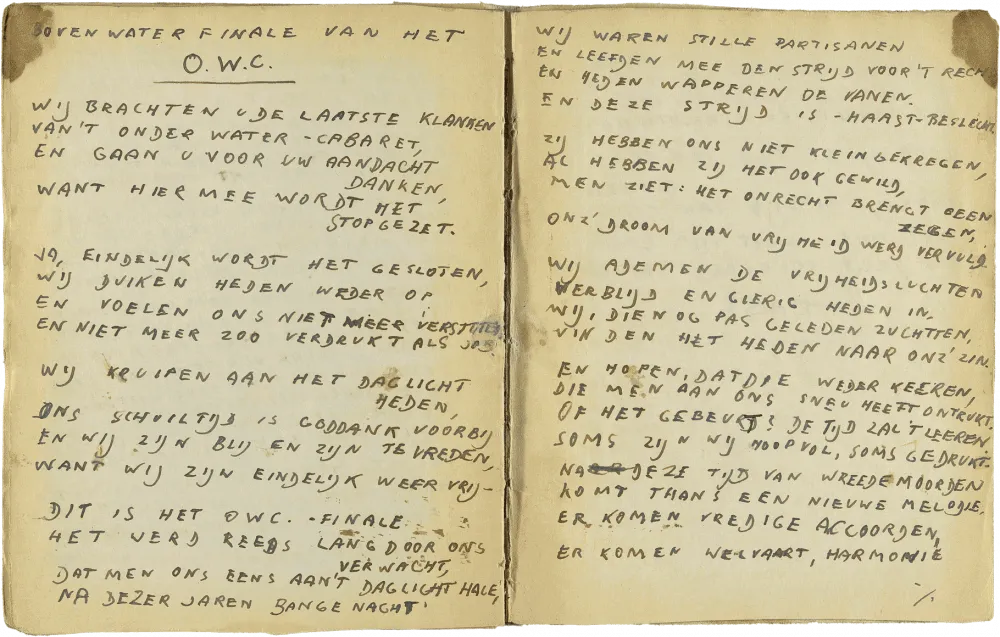 BOVENWATER FINALE VAN HET
O.W.C.
WIJ BRACHTEN U DE LAATSTE KLANKEN
VAN'T ONDER WATER-CABARET,
EN GAAN U VOOR UW AANDACHT
DANKEN,
WANT HIERMEE WORDT HET
STOPGEZET.
JA, EINDELIJK WORDT HET GESLOTEN,
WIJ DUIKEN HEDEN WEDER OP
EN VOELEN ONS NIET MEER VERSTOTEN
EN NIET MEER ZOO VERDRUKT ALS JOB.
WIJ KRUIPEN AAN HET DAGLICHT
HEDEN,
ONS SCHUILTIJD IS GODDANK VOORBIJ
EN WIJ ZIJN BLIJ EN ZIJN TEVREDEN,
WANT WIJ ZIJN EINDELIJK WEER VRIJ-
DIT IS HET OWC.-FINALE.
HET WERD REEDS LANG DOOR ONS
VERWACHT,
DAT MEN ONS EENS AAN'T DAGLICHT HALE,
NA DEZER JAREN BANGE NACHT.
WIJ WAREN STILLE PARTISANEN
EN LEEFDEN MEE DEN STRIJD VOOR'T RECHT
EN HEDEN WAPPEREN DE VANEN.
EN DEZE STRIJD IS -HAAST-BESLECHT.
ZIJ HEBBEN ONS NIET KLEIN GEKREGEN,
AL HEBBEN ZIJ HET OOK GEWILD,
MEN ZIET: HET ONRECHT BRENGT GEEN
ZEGEN,
ONZ' DROOM VAN VRIJHEID WERD VERVULD.
WIJ ADEMEN DE VRIJHEIDSLUCHTEN
VERBLIJD EN GIERIG HEDEN IN.
WIJ, DIE NOG PAS GELEDEN ZUCHTTEN,
VINDEN HET HEDEN NAAR ONZ' ZIN.
EN HOPEN, DAT DIE WEDER KEEREN,
DIE MEN AAN ONS SNEU HEEFT ONTRUKT.
OF HET GEBEURT? DE TIJD ZAL 'T LEEREN
SOMS ZIJN WIJ HOOPVOL, SOMS GEDRUKT.
NA DEZE TIJD VAN WREEDE MOORDEN
KOMT THANS EEN NIEUWE MELODIE.
ER KOMEN VREDIGE ACCOORDEN,
ER KOMEN WELVAART, HARMONIE
./.